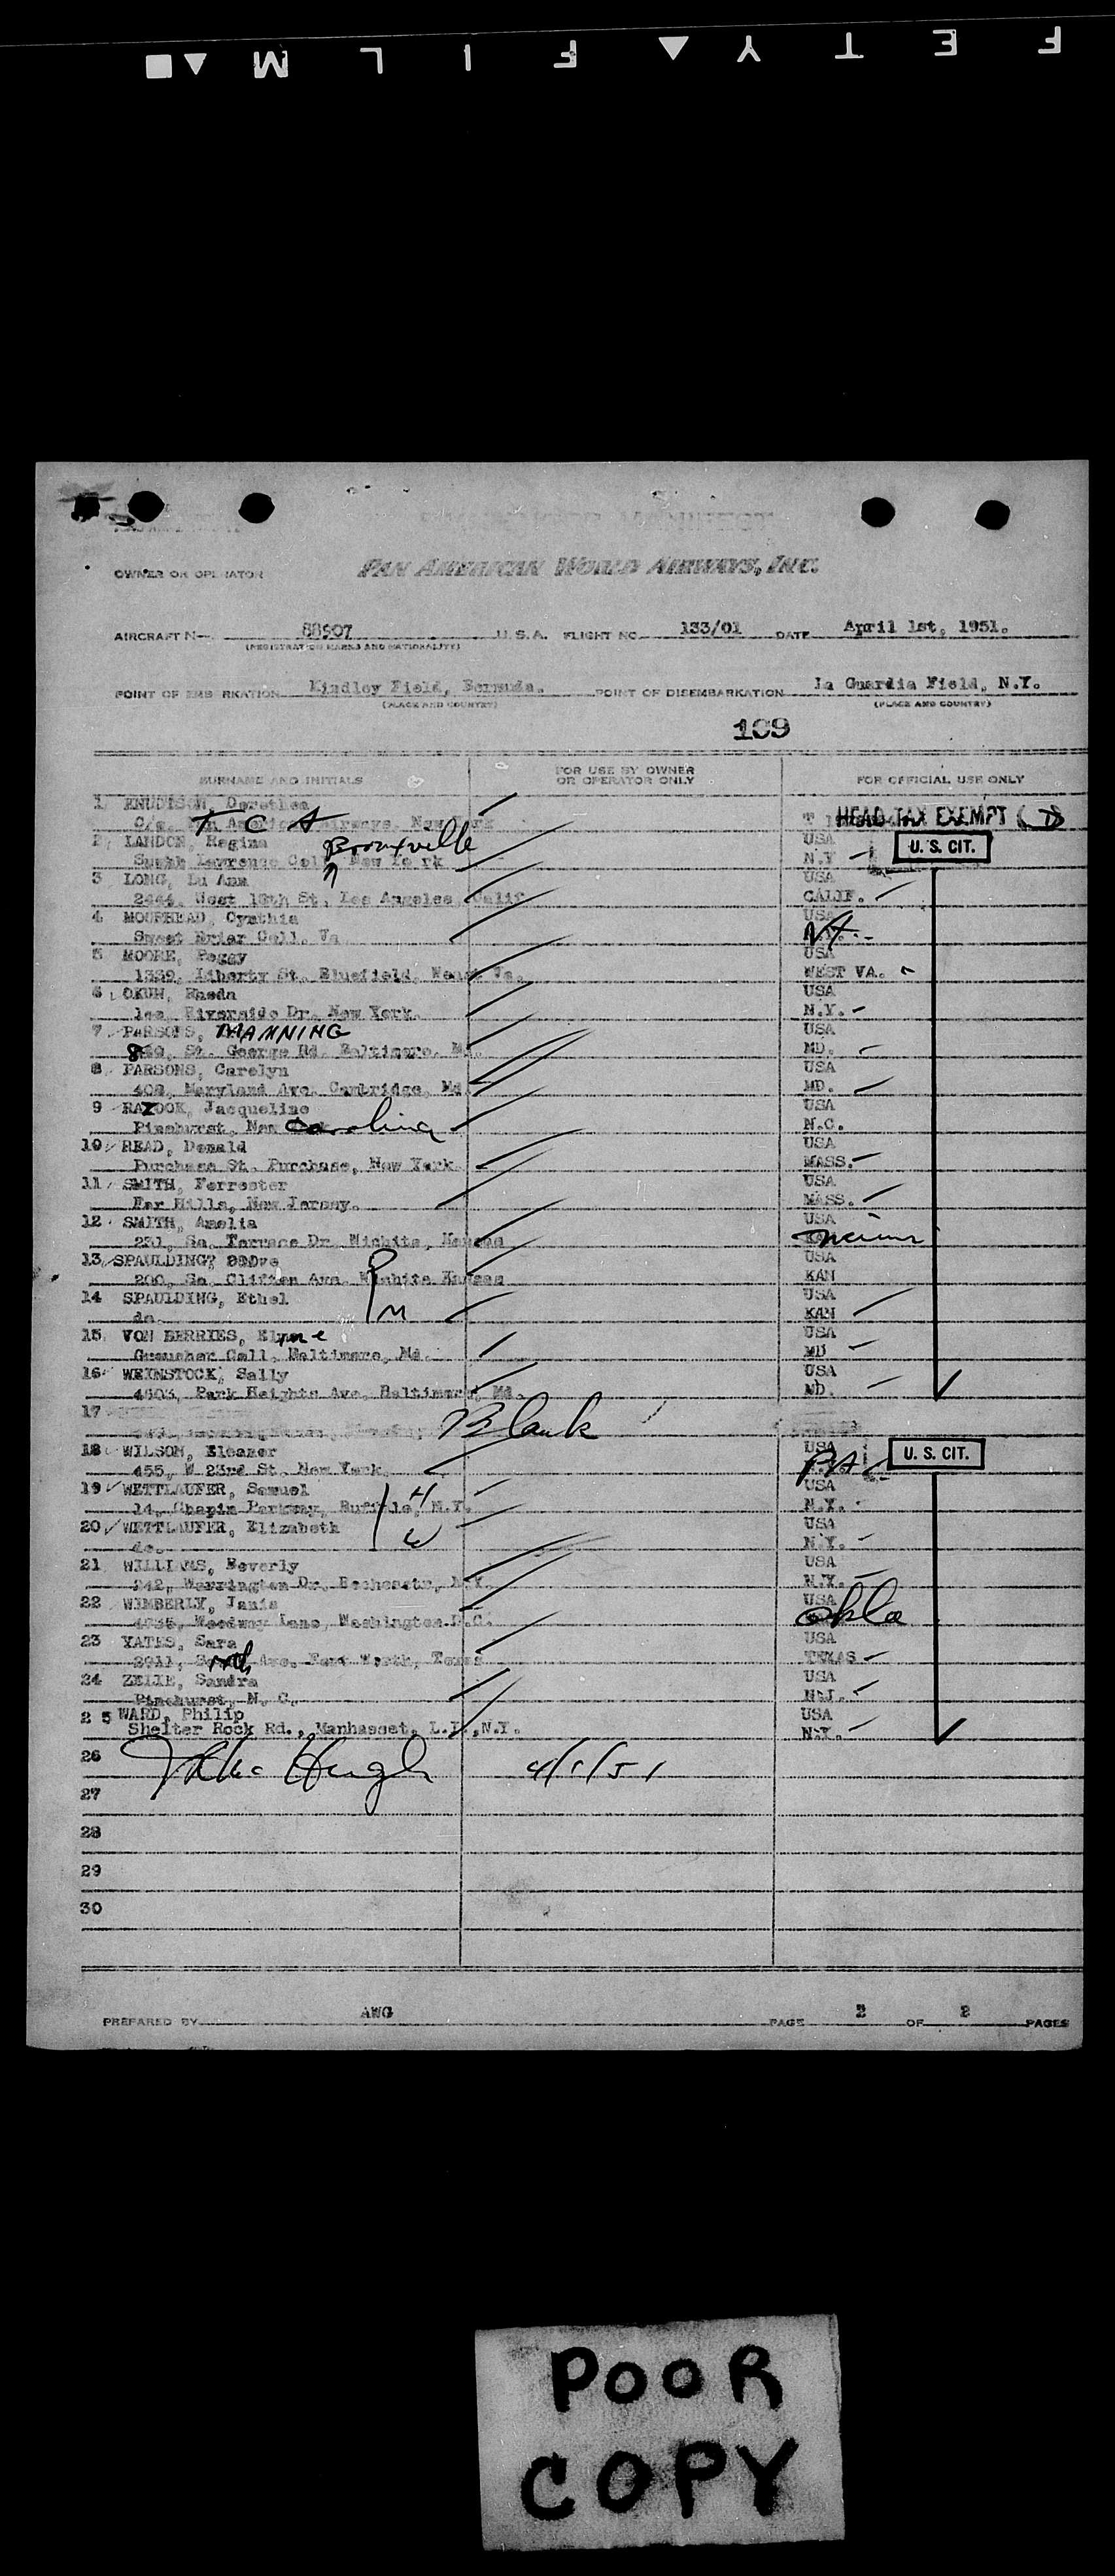 SAFETY FILM
PASSENGER MANIFEST
OWNER OR OPERATOR PAN AMERICAN WORLD AIRWAYS, INC.
AIRCRAFT N— 88907 U.S.A. FLIGHT NO. 133/01 DATE April 1st, 1951.
(REGISTRATION MARKS AND NATIONALITY)
POINT OF EMBARKATION Kindley Field, Bermuda. POINT OF DISEMBARKATION La Guardia Field, N.Y.
(PLACE AND COUNTRY) (PLACE AND COUNTRY)
109
SURNAME AND INITIALS FOR USE BY OWNER OR OPERATOR ONLY FOR OFFICIAL USE ONLY
1 KNUDTSON, Dorothea
C/o. Pan American Airways. New York T C A HEAD TAX EXEMPT
2 LANDON, Regina Bronxville USA U. S. CIT.
Lawrence Coll New York N.Y
3 LONG, Lu Ann USA
2444, West 18th St. Los Angeles, Calif CALIF.
4 MOORHEAD, Cynthia USA
Sweet Briar Coll. Va VA.
5 MOORE, Peggy USA
1339, Liberty St. Bluefield, West Va. WEST VA.
6 OKUN, Rheda USA
Riverside Dr. New York. N.Y.
7 PARSONS, MANNING USA
St. George Rd. Baltimore. Md. MD.
8 PARSONS, Carolyn USA
408, Maryland Ave. Cambridge, Md MD.
9 RAZOOK, Jacqueline USA
Pinehurst, Carolina N.C.
10 READ, Donald USA
Purchase St. Purchase, New York MASS.
11 SMITH, Forrester USA
Far Hills, New Jersey. MASS.
12 SMITH, Amelia USA
231, So. Terrace Dr. Wichita, Kansas
13 SPAULDING, USA
200, So. Clifton Ave. Wichita Kansas KAN
14 SPAULDING, Ethel USA
do. M KAN
15 VON BERRIES, USA
Goucher Coll. Baltimore, Md. MD
16 WEINSTOCK, Sally USA
Park Heights Ave. Baltimore, Md. MD.
17 Blank
18 WILSON, Eleanor USA U. S. CIT.
455, W 23rd St. New York. PA
19 WETTLAUFER, Samuel H USA
14, Chapin Parkway, Buffalo, N.Y. N.Y.
20 WETTLAUFER, Elizabeth W USA
do. N.Y.
21 WILLIAMS, Beverly USA
242, Warrington Dr. N.Y. N.Y.
22 WIMBERLY, Janis USA
Woodway Lane, Washington D.C. Okla
23 YATES, Sara USA
Ave. Fort Worth, Texas TEXAS
24 ZELLE, Sandra USA
Pinehurst, N. C. N.J.
25 WARD, Philip USA
Shelter Rock Rd., Manhasset, L.I.,N.Y. N.Y.
26 4/1/51
27
28
29
30
PREPARED BY AWG PAGE 2 OF 2 PAGES
POOR
COPY